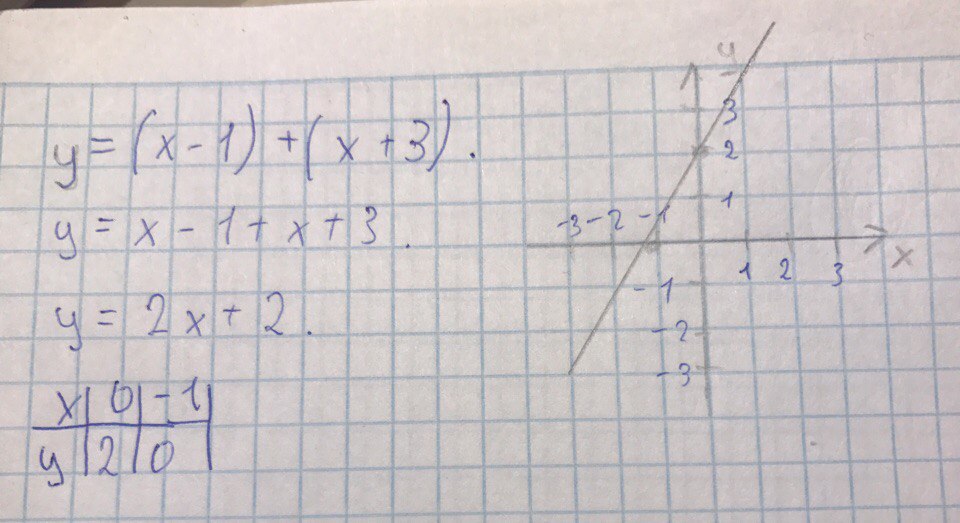 y = (x - 1) + (x + 3).
y = x - 1 + x + 3.
y = 2x + 2.
x | 0 | -1 |
y | 2 | 0 |
y
3
2
1
-3 -2 -1
1 2 3
x
-1
-2
-3